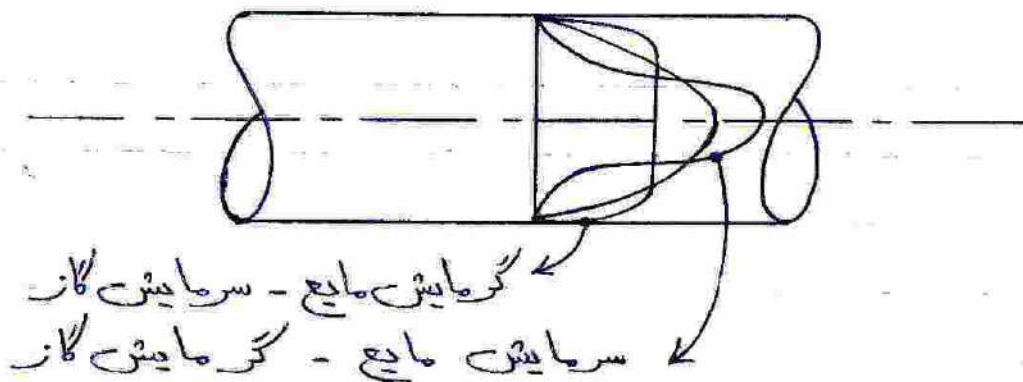 گرمایش مایع - سرمایش گاز
سرمایش مایع - گرمایش گاز